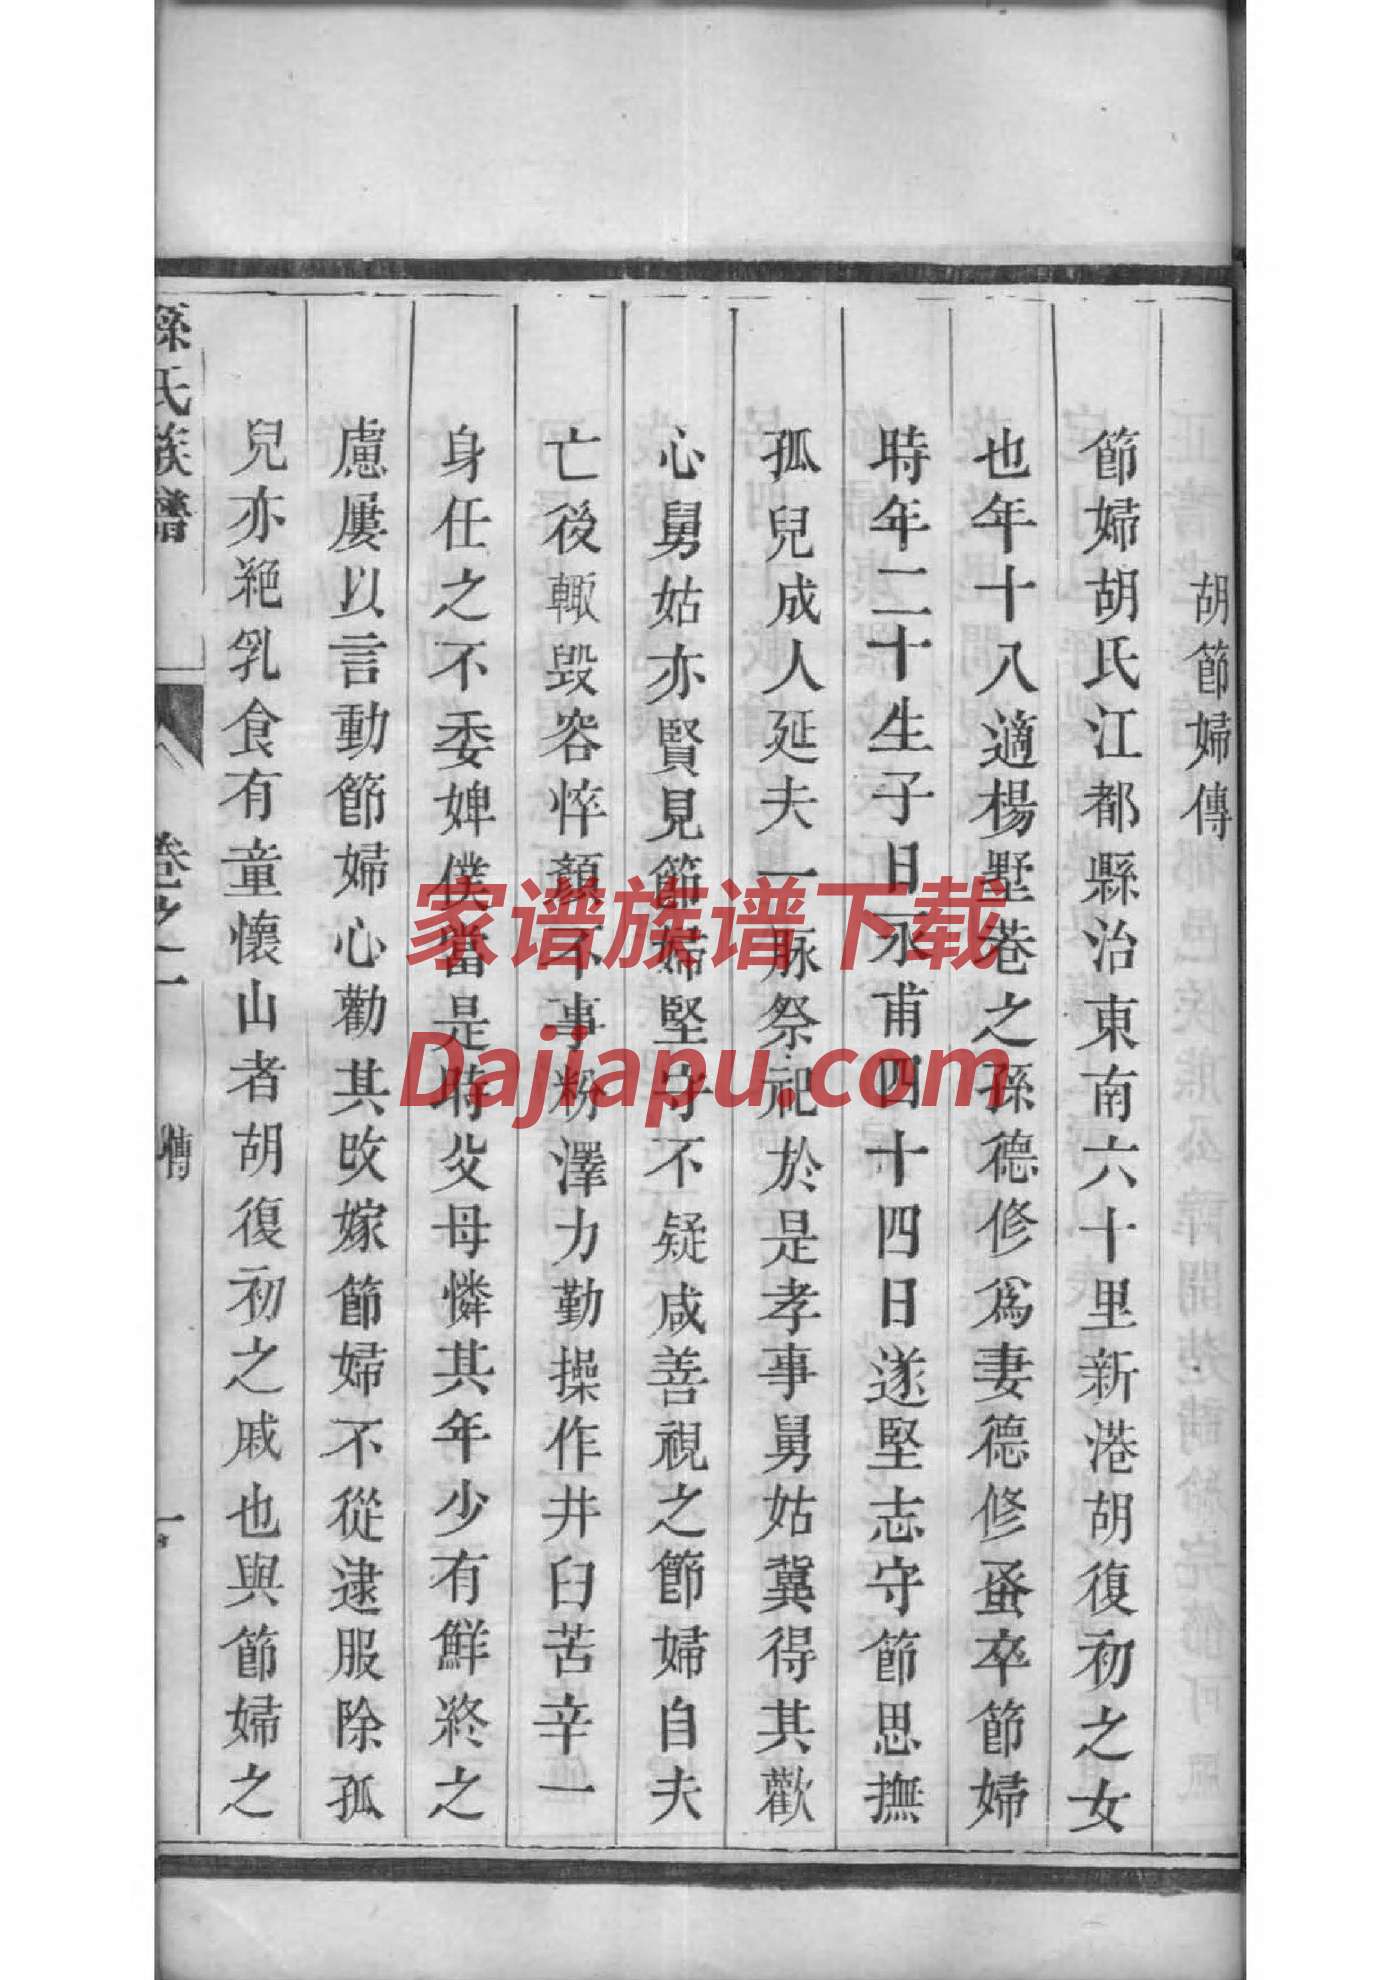 胡節婦傳
節婦胡氏江都縣治東南六十里新港胡復初之女
也年十八適楊墅巷之孫德修爲妻德修蚤卒節婦
時年二十生子日永甫四十四日遂堅志守節思撫
孤兒成人延夫一脉祭祀於是孝事舅姑冀得其歡
心舅姑亦賢見節婦堅守不疑咸善視之節婦自夫
亡後輙毀容悴顏不事粉澤力勤操作井臼苦辛一
身任之不委婢僕當是時父母憐其年少有鮮終之
慮屢以言動節婦心勸其改嫁節婦不從逮服除孤
兒亦絶乳食有童懷山者胡復初之戚也與節婦之
孫氏族譜
卷之一
傳
家谱族谱下载
Dajiapu.com